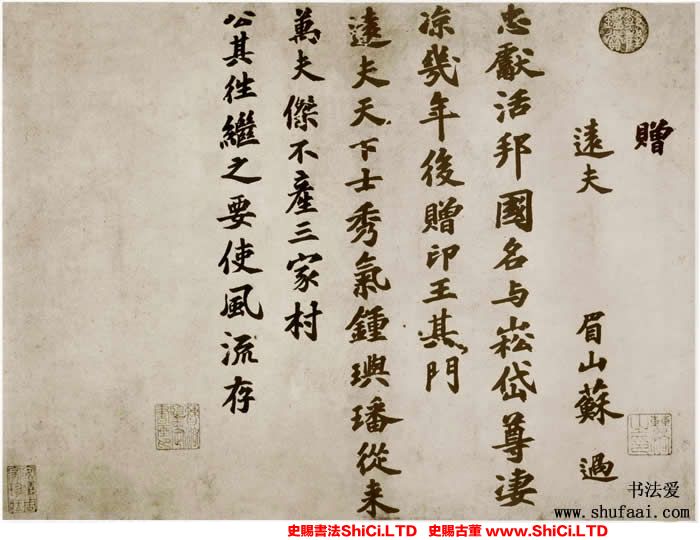 贈
遠夫
眉山蘇過
忠獻活邦國名与崧岱尊凄
凉幾年後贈印王其門
遠夫天下士秀氣鍾璵璠從来
萬夫傑不產三家村
公其往繼之要使風流存
书法爱
www.shufaai.com
史赐書法ShiCi.LTD 史赐古董 www.ShiCi.LTD